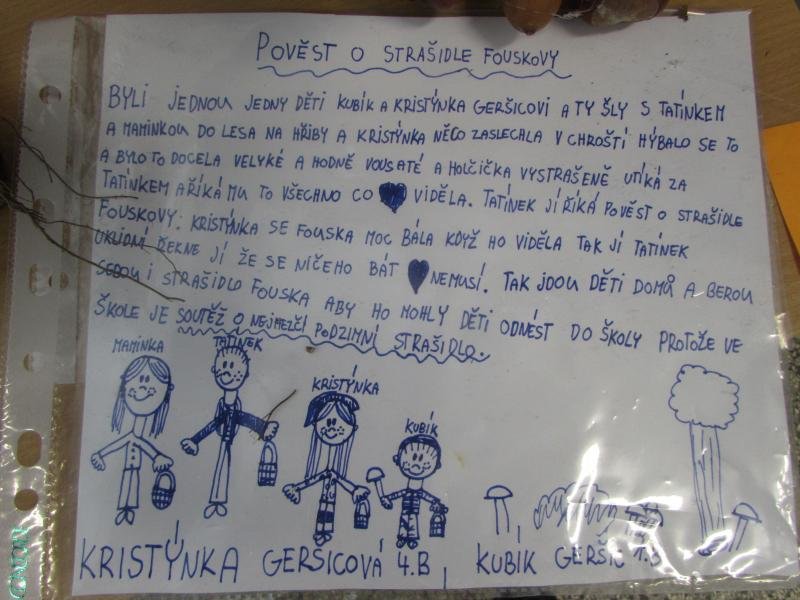 POVĚST O STRAŠIDLE FOUSKOVY
BYLI JEDNOU JEDNY DĚTI KUBÍK A KRISTÝNKA GERŠICOVI A TY ŠLY S TATÍNKEM
A MAMINKOU DO LESA NA HŘIBY A KRISTÝNKA NĚCO ZASLECHLA V CHROŠTÍ HÝBALO SE TO
A BYLO TO DOCELA VELYKÉ A HODNĚ VOUSATÉ A HOLČIČKA VYSTRAŠENĚ UTÍKÁ ZA
TATÍNKEM A ŘÍKÁ MU TO VŠECHNO CO VIDĚLA. TATÍNEK JÍ ŘÍKÁ POVĚST O STRAŠIDLE
FOUSKOVY. KRISTÝNKA SE FOUSKA MOC BÁLA KDYŽ HO VIDĚLA TAK JÍ TATÍNEK
UKLIDNÍ ŘEKNE JÍ ŽE SE NIČEHO BÁT NEMUSÍ. TAK JDOU DĚTI DOMŮ A BEROU
SEBOU I STRAŠIDLO FOUSKA ABY HO MOHLY DĚTI ODNÉST DO ŠKOLY PROTOŽE VE
ŠKOLE JE SOUTĚŽ O NEJHEZČÍ PODZIMNÍ STRAŠIDLO.
MAMINKA
TATÍNEK
KRISTÝNKA
KUBÍK
KRISTÝNKA GERŠICOVÁ 4.B, KUBÍK GERŠIC